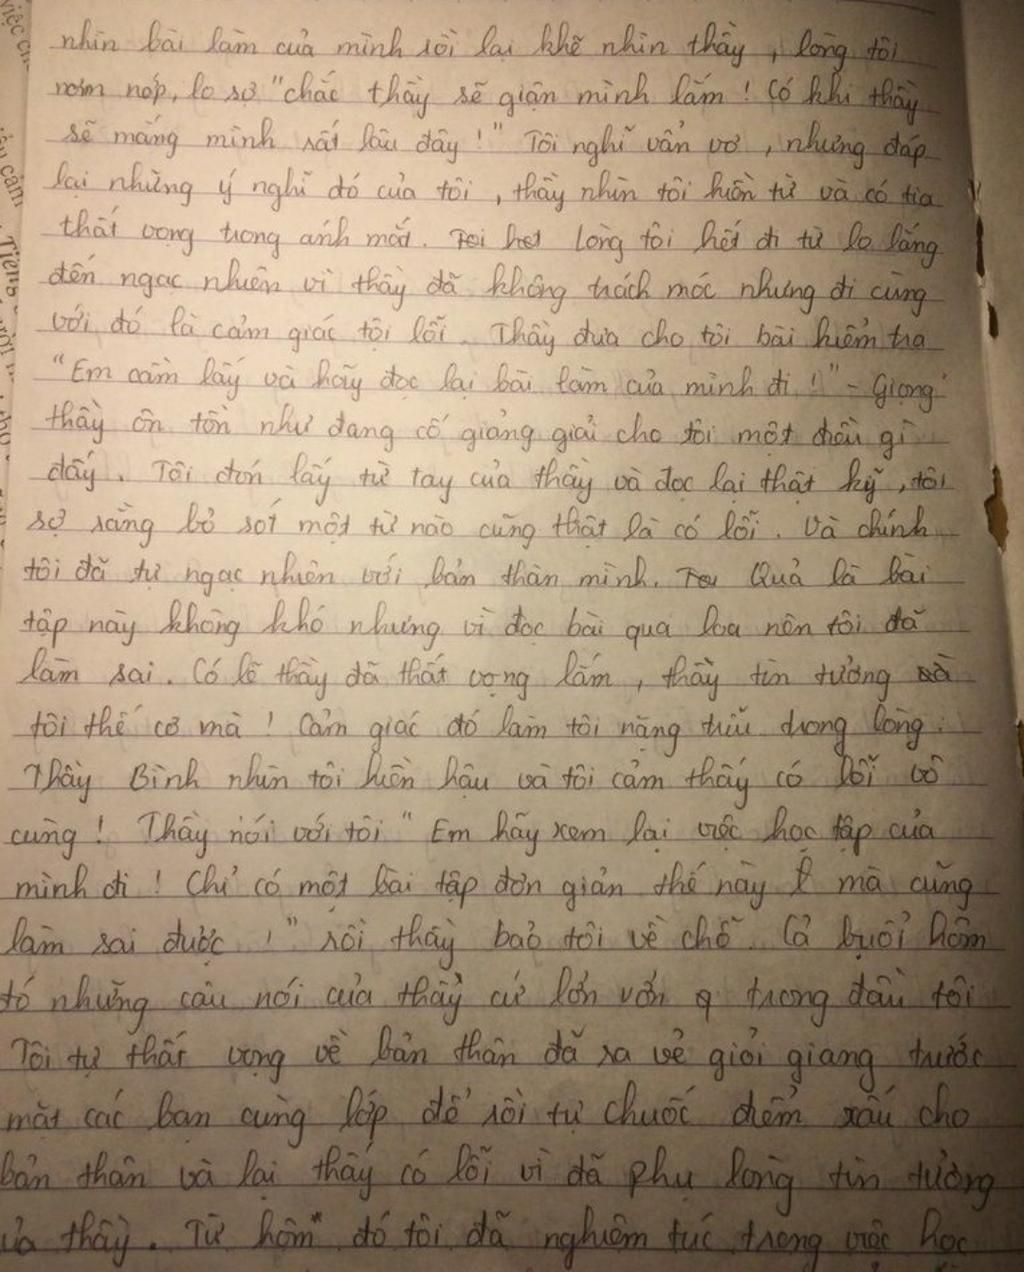 nhìn bài làm của mình rồi lại khẽ nhìn thầy, lòng tôi
nơm nớp, lo sợ "chắc thầy sẽ giận mình lắm! Có khi thầy
sẽ mắng mình rất lâu đấy!" Tôi nghĩ vẩn vơ, nhưng đáp
lại những ý nghĩ đó của tôi, thầy nhìn tôi hiền từ và có tia
thất vọng trong ánh mắt. Lòng tôi hết đi từ lo lắng
đến ngạc nhiên vì thầy đã không trách móc nhưng đi cùng
với đó là cảm giác tội lỗi. Thầy đưa cho tôi bài kiểm tra
"Em cầm lấy và hãy đọc lại bài làm của mình đi!" - Giọng
thầy ôn tồn như đang cố giảng giải cho tôi một điều gì
đấy. Tôi đón lấy từ tay của thầy và đọc lại thật kỹ, tôi
sợ rằng bỏ sót một từ nào cũng thật là có lỗi. Và chính
tôi đã tự ngạc nhiên với bản thân mình. Quả là bài
tập này không khó nhưng vì đọc bài qua loa nên tôi đã
làm sai. Có lẽ thầy đã thất vọng lắm, thầy tin tưởng
tôi thế cơ mà! Cảm giác đó làm tôi nặng trĩu trong lòng.
Thầy Bình nhìn tôi hiền hậu và tôi cảm thấy có lỗi vô
cùng! Thầy nói với tôi "Em hãy xem lại việc học tập của
mình đi! Chỉ có một bài tập đơn giản thế này mà cũng
làm sai được!" rồi thầy bảo tôi về chỗ. Cả buổi hôm
đó những câu nói của thầy cứ lởn vởn trong đầu tôi
Tôi tự thất vọng về bản thân đã ra vẻ giỏi giang trước
mặt các bạn cùng lớp để rồi tự chuốc điểm xấu cho
bản thân và lại thấy có lỗi vì đã phụ lòng tin tưởng
của thầy. Từ hôm đó tôi đã nghiêm túc trong việc học